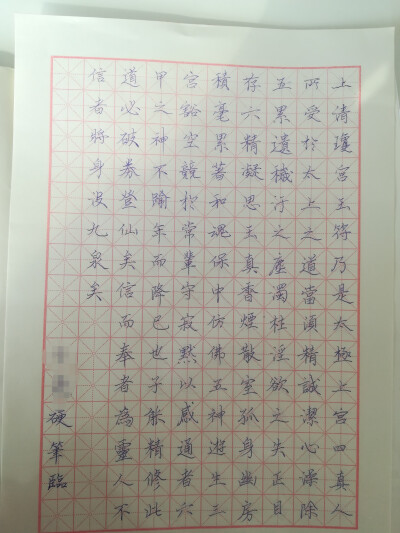 上清瓊宮玉符乃是太極上宮四真人
所受於太上之道當須精誠潔心澡除
五累遺穢汙之塵濁杜淫欲之失正目
存六精凝思玉真香煙散室孤身幽房
積毫累著和魂保中仿佛五神遊生三
宮豁空競於常輩守寂默以感通者六
甲之神不踰年而降已也子能精修此
道必破券登仙矣信而奉者為靈人不
信者將身沒九泉矣
硬筆臨